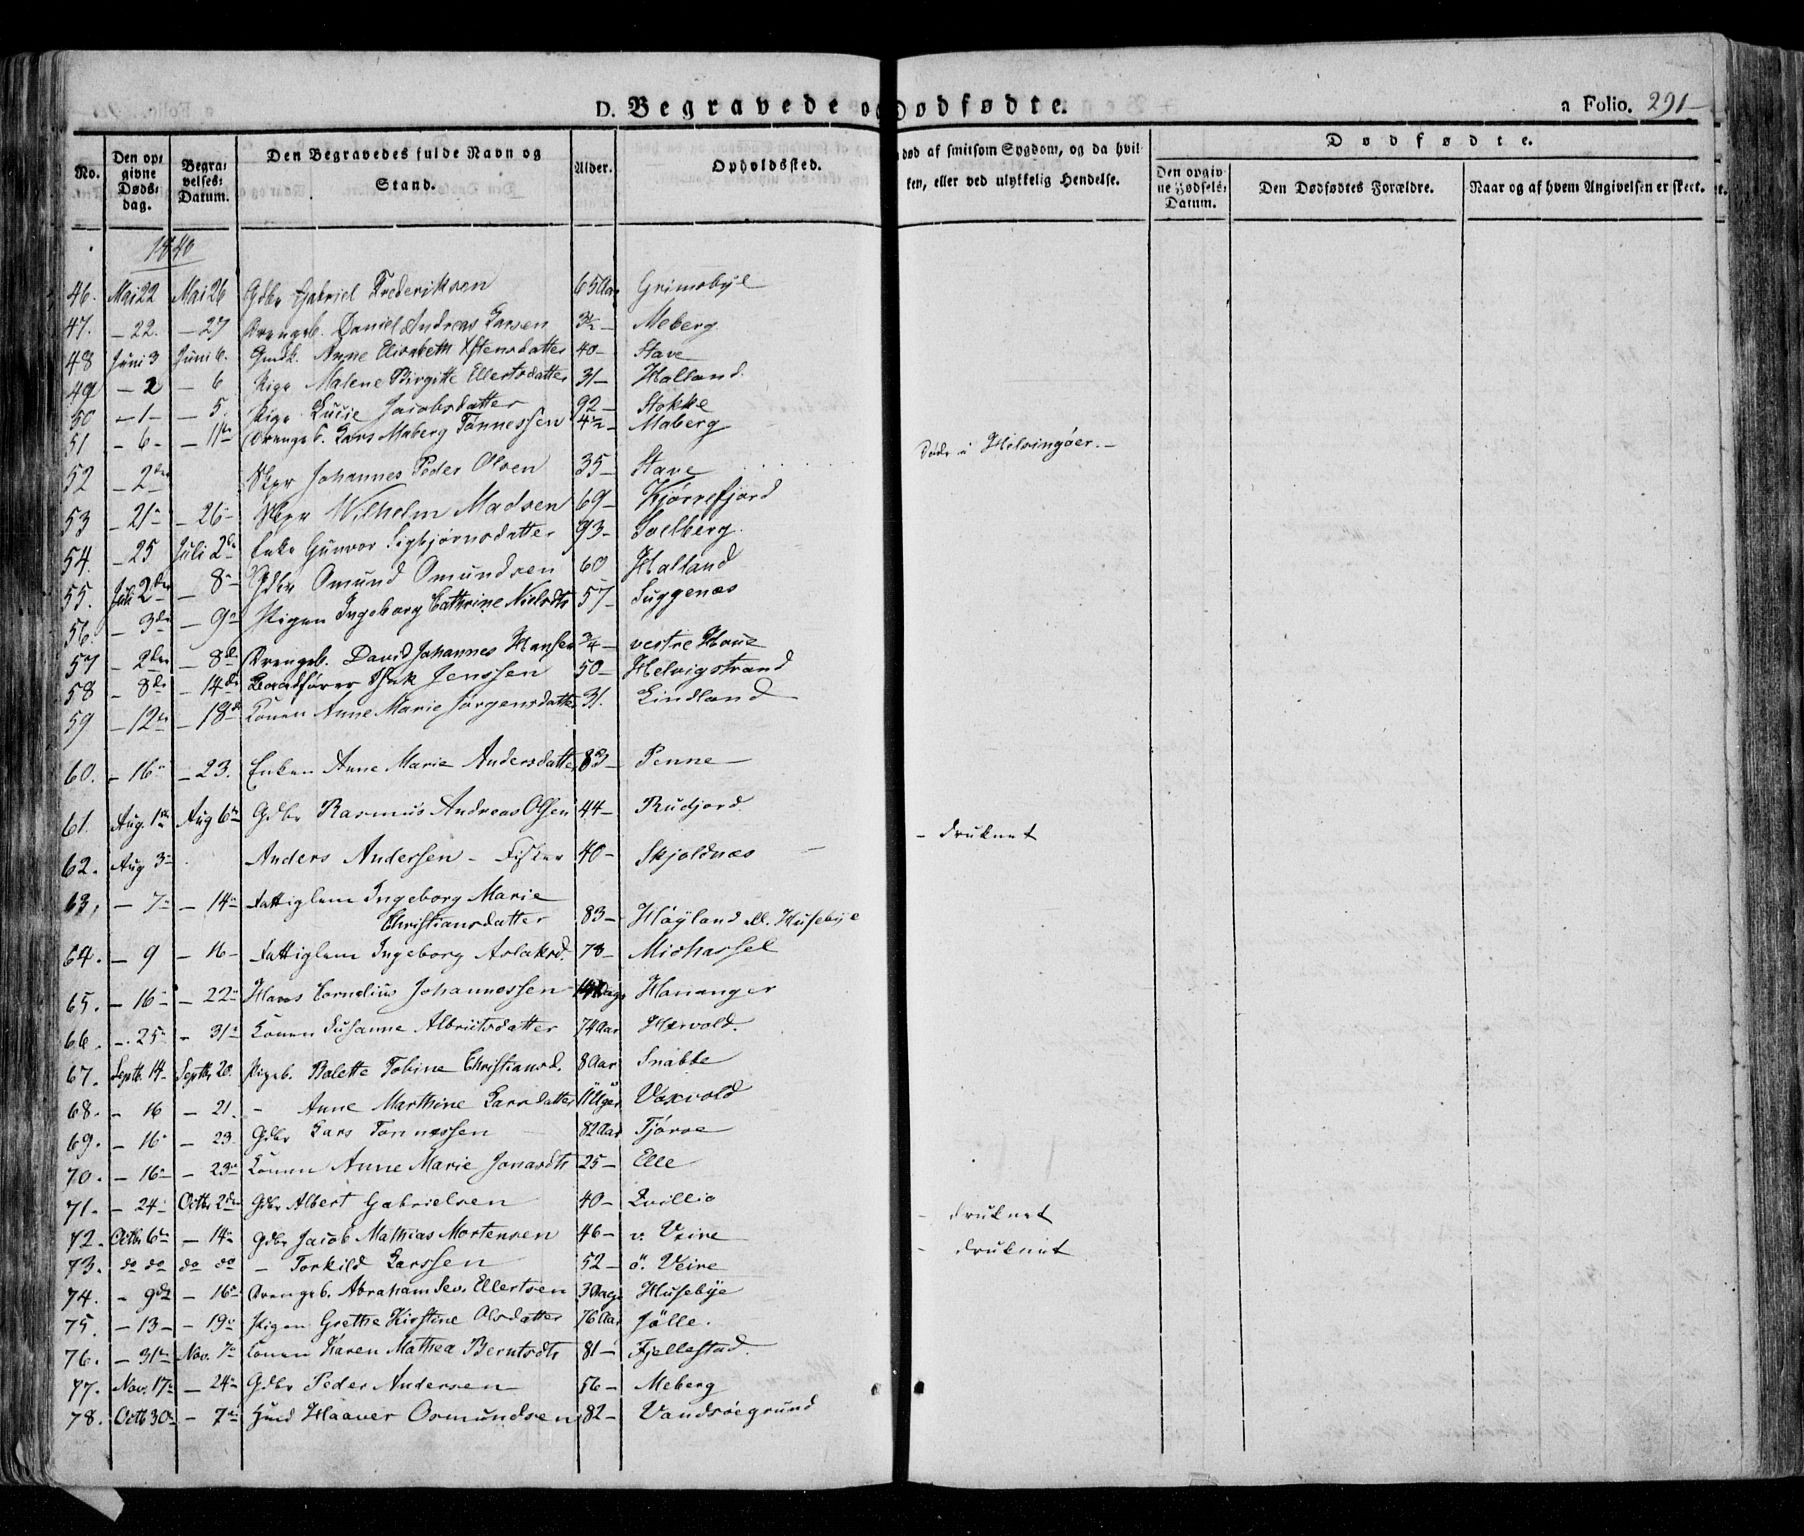 D. Begravede og Dødfødte. a Folio. 291
No. Den opgivne Dødsdag. Begravelses-Datum. Den Begravedes fulde Navn og Stand. Alder. Opholdssted. død af smitsom Sygdom, og da hvilken, eller ved ulykkelig Hendelse. Dødfødte.
Den opgivne Fødsels-Datum. Den Dødfødtes Forældre. Naar og af hvem Angivelsen er skeet.
1840
46. Mai 22 Mai 26 Gdbr Gabriel Frederiksen 65 Aar Grimsbye
47. – 22. – 27 Drengeb. Daniel Andreas Larsen Meberg
48 Juni 3 Juni 6. Anne Elisabeth datter 40 – Stave
49 – 2 – 6 Pige Malene Birgitte Ellertsdatter 31 – Halland
50 – 1 – – 5. Pige Lucie Jacobsdatter 92 – Stokke
51 – 6 – – 11te Drengeb. Lars Maberg Tønnessen 4½ – Maberg
52 – 2den Johannes Peder Olsen 35 – Stave Døde i Helsingøer. –
53 – 21 – 26 Wilhelm Madsen 69 – Kjørrefjord
54. – 25 Juli 2de Enke Gunvor Sigbjørnsdatter 93 – Sælberg.
55. Juli 2den – 8 Gdbr Omund Omundsen 60 Halland
56. – 3de – 9 Pigen Ingeborg Cathrine Nielsdtr 57 – Suggenæs
57 – 2den – 8de Drengeb. David Johannes Hansen ¾ – vestre Hauge
58 – 8de – 14de Baadfører Isak Jenssen 50 – Helvigstrand
59 – 12te – 18de Konen Anne Marie Jørgensdatter 31. Lindland
60. – 16 – 23. Enken Anne Marie Andersdatter 83 – Penne –
61. Aug. 1ste Aug 6te Gdbr Rasmus Andreas Olsen 44 – Rudjord
62. Aug 3 Anders Andersen – Fisker 40 – Skjoldnæs – druknet
63. – 7 – 14 Fattiglem Ingeborg Marie
Christiansdatter 83 – Høyland ell. Husebye
64. – 9 – 16 – Fattiglem Ingeborg Aslaksd. 78 – Midhassel
65. – 16 – 22 Hans Cornelius Johannessen 14 Dage Hananger
66. – 25 – 31 Konen Susanne Albrettsdatter 74 Aar Hervold.
67. Septb. 14 – Septbr 20. Pigeb. Balette Tobine Christiansd. 8 Aar Snabbe
68. – 16 – 21. – Anne Marthine Larsdatter 11 Uger Vaxvold
69. – 16 – 23. Gdbr Lars Tønnessen 82 Aar Tjørve
70. – 16 – 23 Konen Anne Marie Jonasdtr 25 – Elle
71. – 24 Octbr 2den Gdbr Albert Gabrielsen 40 – Qvillio
72. Octbr 6te – 14 Gdbr Jacob Mathias Mortensen 46 – v. Veire – druknet
73. do do do do – Torkild Larssen 52 – ö. Veire – druknet
74. – 9de – 16 Drengeb. Abraham Sev. Ellertsen 3 Dage Husebye
75. – 13 – – 19 Pigen Grethe Kirstine Olsdatter 76 Aar Jølle.
76. – 31te Nov. 7 Konen Karen Mathea Berntsdtr 81 – Fjellestad.
77. Nov. 17 – 24 Gdbr Peder Andersen 56 – Meberg
78. Octb 30 – 7 Haaver Osmundsen 82 – Vandsøegrund